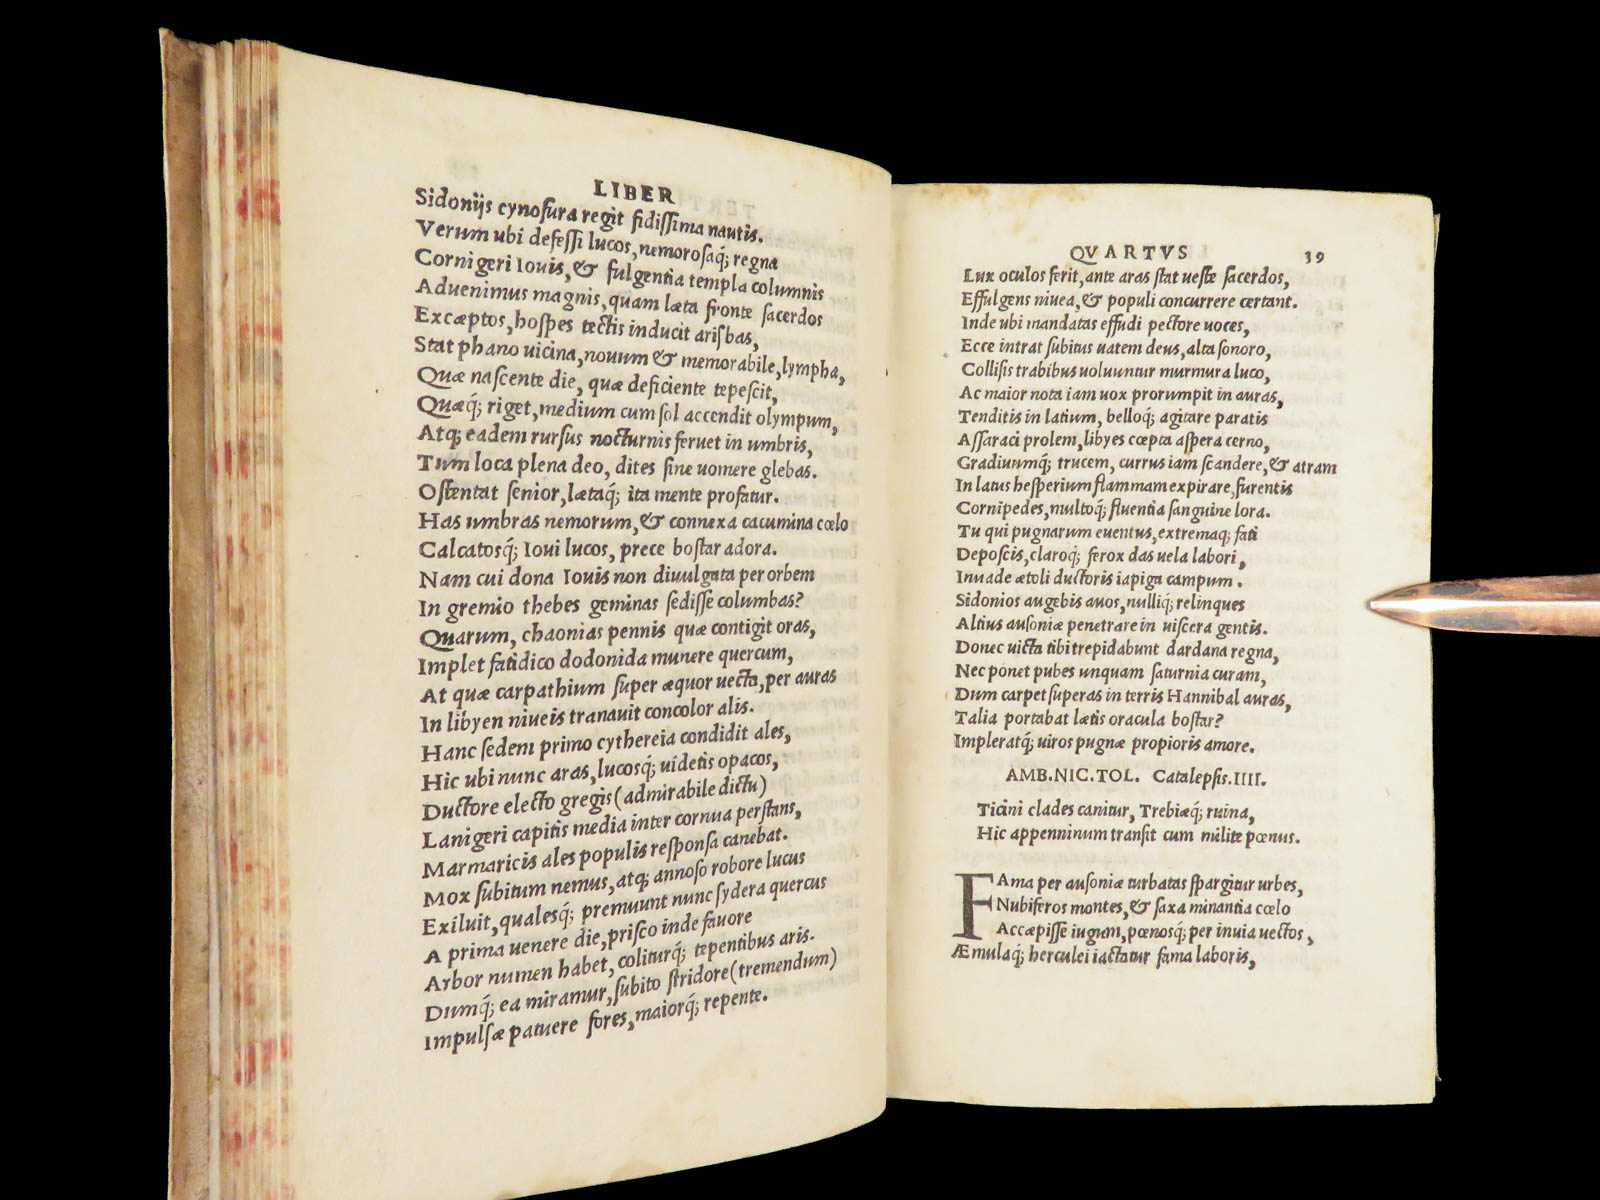 LIBER
Sidonijs cynosura regit fidissima nautis.
Verum ubi defessi lucos, nemorosaq; regna
Cornigeri Iouis, & fulgentia templa columnis
Aduenimus magnis, quam læta fronte sacerdos
Excæptos, hospes tectis inducit arisbas,
Stat phano uicina, nouum & memorabile, lympha,
Quæ nascente die, quæ deficiente tepescit,
Quæq; riget, medium cum sol accendit olympum,
Atq; eadem rursus nocturnis feruet in umbris,
Tum loca plena deo, dites sine uomere glebas.
Ostentat senior, lætaq; ita mente profatur.
Has umbras nemorum, & connexa cacumina cœlo
Calcatosq; Ioui lucos, prece bostar adora.
Nam cui dona Iouis non diuulgata per orbem
In gremio thebes geminas sedisse columbas?
Quarum, chaonias pennis quæ contigit oras,
Implet fatidico dodonida munere quercum,
At quæ carpathium super æquor uecta, per auras
In libyen niueis tranauit concolor alis.
Hanc sedem primo cythereia condidit ales,
Hic ubi nunc aras, lucosq; uidetis opacos,
Ductore electo gregis (admirabile dictu)
Lanigeri capitis media inter cornua perstans,
Marmaricis ales populis responsa canebat.
Mox subitum nemus, atq; annoso robore lucus
Exiluit, qualesq; premuunt nunc sydera quercus
A prima uenere die, prisco inde fauore
Arbor numen habet, coliturq; tepentibus aris.
Dumq; ea miramur, subito stridore (tremendum)
Impulsæ patuere fores, maiorq; repente.
QVARTVS 39
Lux oculos ferit, ante aras stat ueste sacerdos,
Effulgens niuea, & populi concurrere certant.
Inde ubi mandatas effudi pectore uoces,
Ecce intrat subitus uatem deus, alta sonoro,
Collisis trabibus uoluuntur murmura luco,
Ac maior nota iam uox prorumpit in auras,
Tenditis in latium, belloq; agitare paratis
Assaraci prolem, libyes cœpta aspera cerno,
Gradiuumq; trucem, currus iam scandere, & atram
In latus hesperium flammam expirare, furentis
Cornipedes, multoq; fluentia sanguine lora.
Tu qui pugnarum euentus, extremaq; fati
Deposcis, claroq; ferox das uela labori,
Inuade ætoli ductoris iapiga campum.
Sidonios augebis auos, nulliq; relinques
Altius ausoniæ penetrare in uiscera gentis.
Donec uicta tibi trepidabunt dardana regna,
Nec ponet pubes unquam saturnia curam,
Dum carpet superas in terris Hannibal auras,
Talia portabat lætis oracula bostar?
Impleratq; uiros pugnæ propioris amore.
AMB.NIC.TOL. Catalepsis.IIII.
Ticini clades canitur, Trebiæq; ruina,
Hic appenninum transit cum milite pœnus.
FAma per ausoniæ turbatas spargitur urbes,
Nubiferos montes, & saxa minantia cœlo
Accæpisse iugum, pœnosq; per inuia uectos,
Æmulaq; herculei iactatur fama laboris,